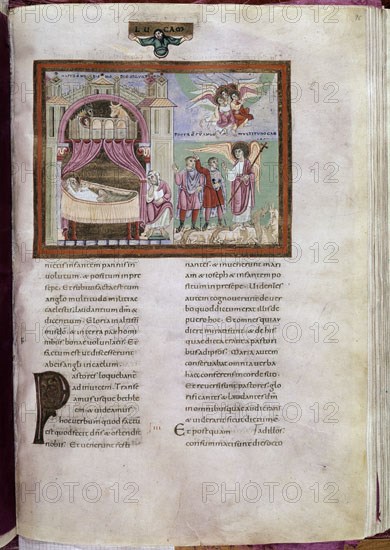 LUCAM
nietis infantem pannis in
uolutum. & positum in pre
sepe. Et subito facta est cum
angelo multitudo militiae
caelestis, laudantium dm &
dicentium. Gloria in altissi
mis do & in terra pax homi
nibus bonae uoluntatis. Et
factum est ut discesserunt
ab eis angeli in caelum.
Pastores loquebant
ad inuicem. Transe
amus usque bethle
em & uideamus
hoc uerbum quod factu
est quod fecit dns & ostendit
nobis. Et uenerunt festi
nantes. & inuenerunt mari
am & ioseph & infantem po
situm in presepe. Uidentes
autem cognouerunt de uer
bo quod dictum erat illis de
puero hoc. Et omnes qui au
dier mirati sunt. & de his
quae dicta erant a pastori
bus ad ipsos. Maria autem
conseruabat omnia uerba
haec. conferens in corde suo.
Et reuersi sunt pastores glo
rificantes & laudantes dm
in omnibus quae audierant
& uiderant sicut dictum e
Et postquam ad illos.
consummati sunt dies octo
PHOTO 12